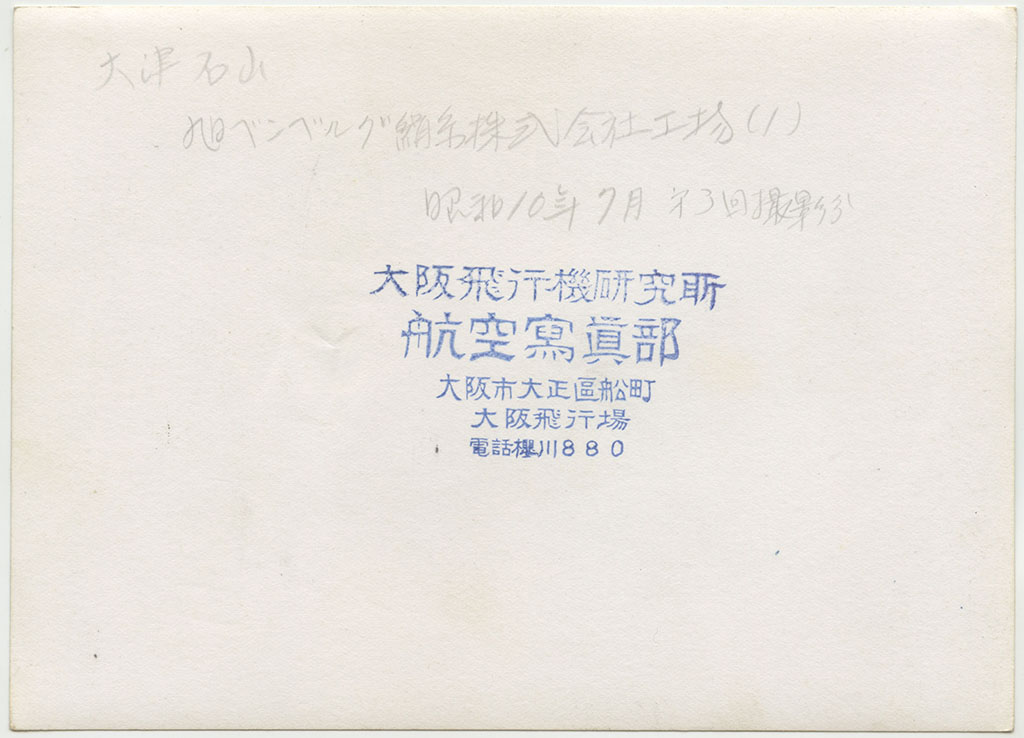 大津石山
旭ベンベルグ絹糸株式会社工場(1)
昭和10年9月 第3回撮影分
大阪飛行機研究所
航空寫眞部
大阪市大正區船町
大阪飛行場
電話櫻川880